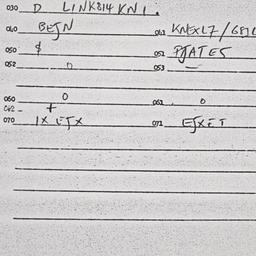 030 D LINK814 KN1.
040 BEJN 041 KNEXL7/
050 $ 051 PJATES
052 0 053 —
060 0 061 0
062 +
070 1X EJX 071 EJXET